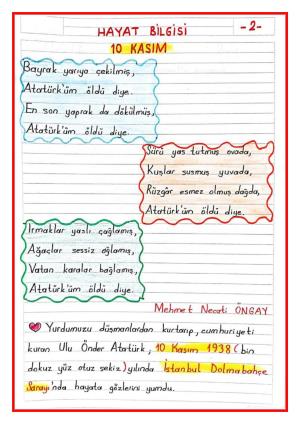 HAYAT BİLGİSİ
-2-
10 KASIM
Bayrak yarıya çekilmiş,
Atatürk'üm öldü diye.
En son yaprak da dökülmüş,
Atatürk'üm öldü diye.
Sürü yas tutmuş ovada,
Kuşlar susmuş yuvada,
Rüzgâr esmez olmuş dağda,
Atatürk'üm öldü diye.
Irmaklar yaslı çağlamış,
Ağaçlar sessiz ağlamış,
Vatan karalar bağlamış,
Atatürk'üm öldü diye.
Mehmet Necati ÖNGAY
Yurdumuzu düşmanlardan kurtarıp, cumhuriyeti
kuran Ulu Önder Atatürk, 10 Kasım 1938 (bin
dokuz yüz otuz sekiz) yılında İstanbul Dolmabahçe
Sarayı'nda hayata gözlerini yumdu.